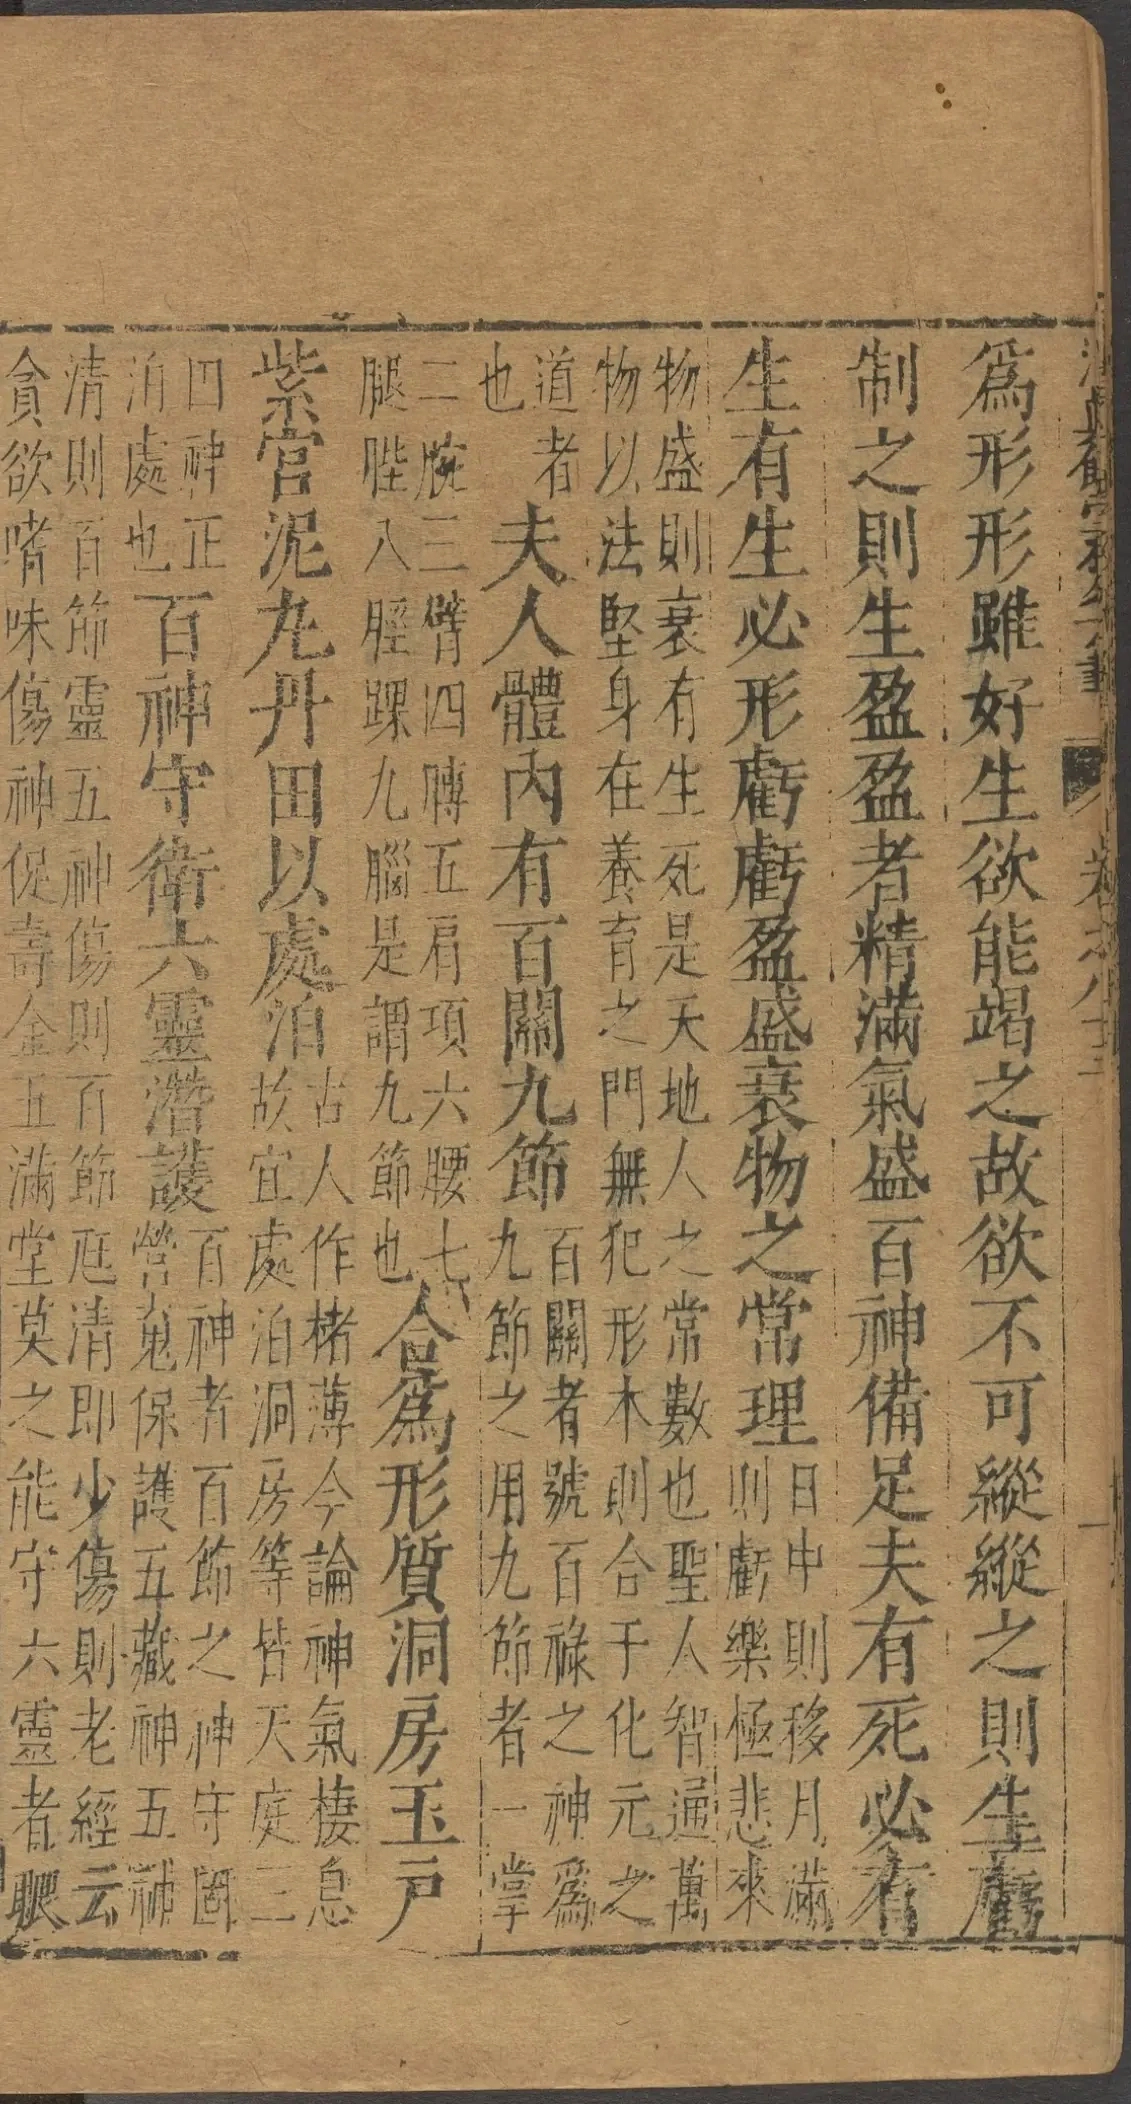 爲形形雖好生欲能竭之故欲不可縱縱之則生虧
制之則生盈盈者精滿氣盛百神備足夫有死必有
生有生必形虧虧盈盛衰物之常理
日中則移月滿
則虧樂極悲來
物盛則衰有生死是天地人之常數也聖人智通萬
物以法堅身在養育之門無犯形木則合于化元之
道者
也
夫人體內有百關九節
百關者號百祿之神爲
九節之用九節者一掌
二腕三臂四膊五肩項六腰七
腿脞八脛踝九腦是謂九節也
合爲形質洞房玉戶
紫宮泥丸丹田以處泊
古人作楮薄今論神氣棲息
故宜處泊洞房等皆天庭三
四神正
泊處也
百神守衛六靈潛護
百神者百節之神守固
營䰟保護五藏神五神
清則百節靈五神傷則百節尫清即少傷則老經云
貪欲嗜味傷神促壽金五滿堂莫之能守六靈者眼